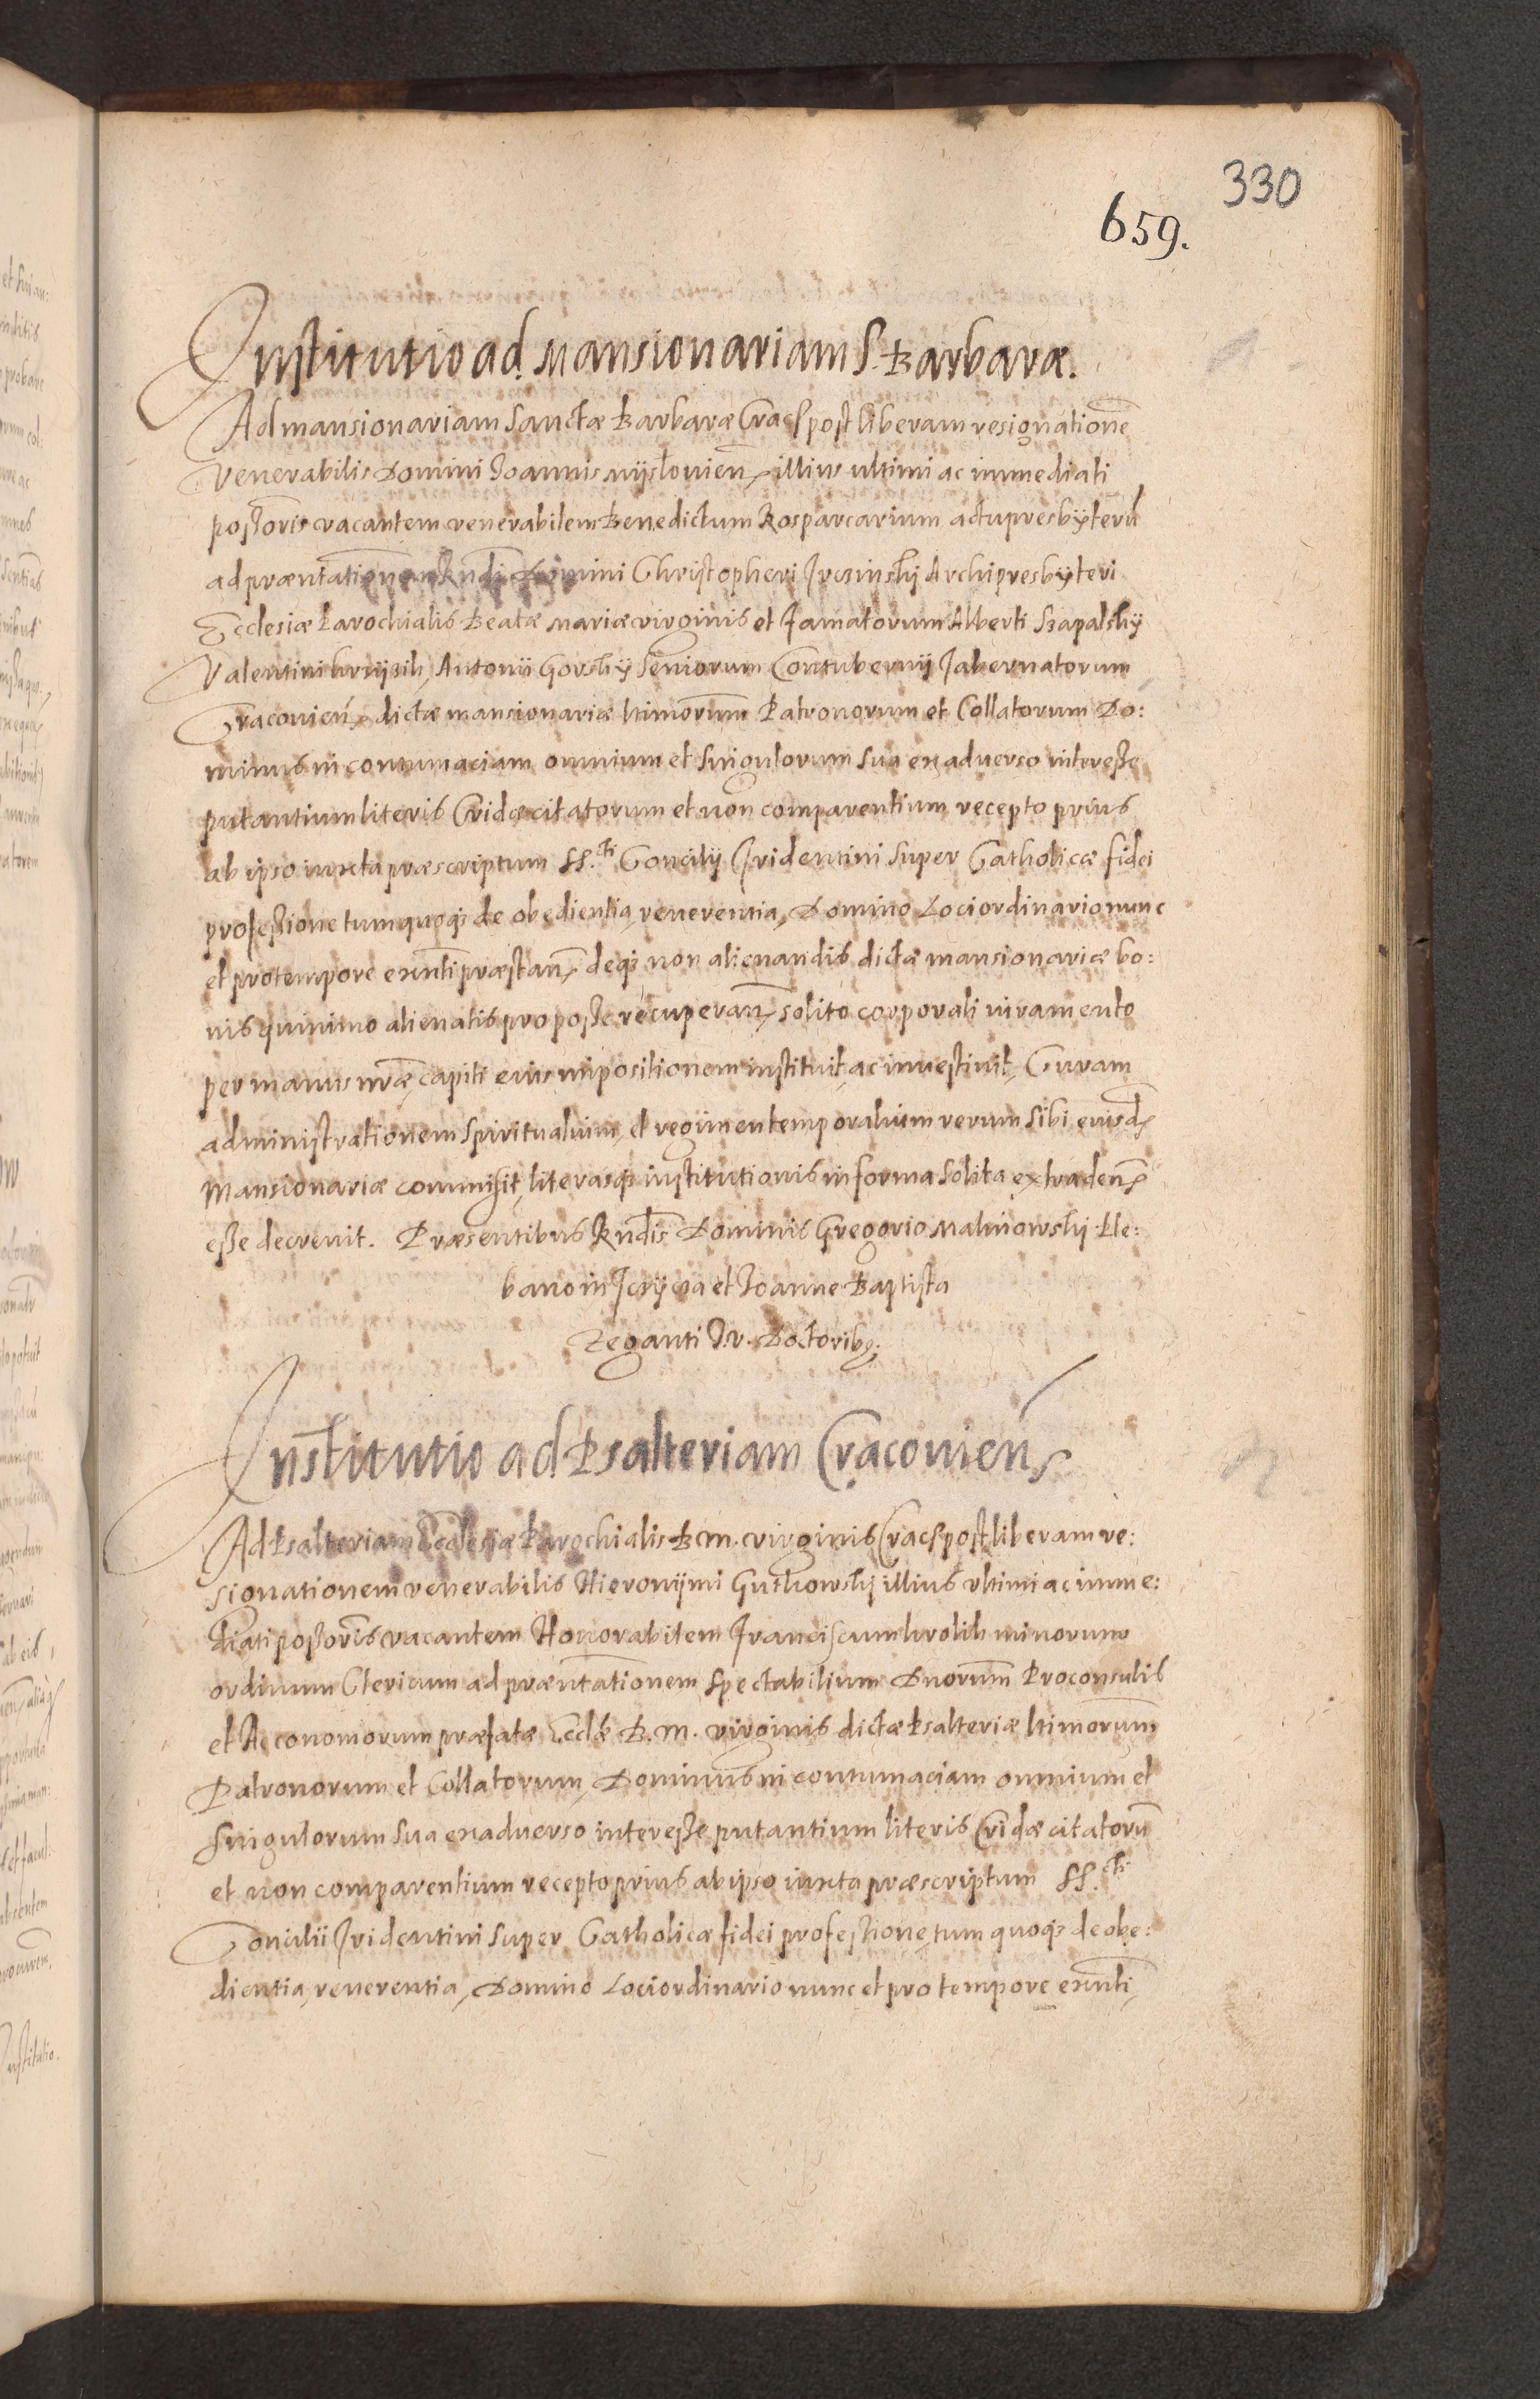 330
659.
Institutio ad Mansionariam S. Barbaræ.
Ad mansionariam Sanctæ Barbaræ Crac post liberam resignationē
Venerabilis Domini Joannis Miisłouien illius ultimi ac immediati
poßoris vacantem venerabilem Benedictum Rosparcarium actu presbyterū
ad præntationem Rndi Domini Christopheri Trczinskj Archipresbyteri
Ecclesiæ Parochialis Beatæ Mariæ virginis et famatorum Alberti Szapalsky
Valentini kruÿzik, Antonii Gorskÿ Seniorum Contubernij Tabernatorum
Cracouien dictæ mansionariæ ltimorum Patronorum et Collatorum Do:
minus in contumaciam omnium et singulorum sua ex aduerso intereße
putantium literis Cridæ citatorum et non comparentium recepto prius
ab ipso iuxta præscriptum SS.ti Concilij Tridentini super Catholicæ fidei
profeßione tum quoq de obedientia, reuerentia, Domino Loci ordinario nunc
et pro tempore exnti præstan deq non alienandis dictæ mansionariæ bo:
nis quinimo alienatis pro poße recuperan solito corporali iuramento
per manus nræ capiti eius impositionem instituit ac inuestiuit, Curam
administrationem spiritualium, et regimen temporalium rerum sibi eiusd
Mansionariæ commisit, literasq institutionis in forma solita extraden
eße decreuit. Præsentibus Rndis Dominis Gregorio Malinowskj Ple:
bano in Tczÿcza et Joanne Baptista
Zeganti J. V. Doctoribq.
Institutio ad Psalteriam Cracouien
Ad Psalteriam Ecclesiæ Parochialis B. M. virginis Crac post liberam re:
signationem venerabilis Hieronÿmi Gutkowskj illius vltimi ac imme:
diati poßoris vacantem Honorabilem Franciscum krolik minorum
ordinum Clericum ad præntationem Spectabilium Dnorum Proconsulis
et Aeconomorum præfatæ Eccłæ B. M. virginis dictæ Psalteriæ ltimorum
Patronorum et Collatorum, Dominus in contumaciam omnium et
singulorum sua ex aduerso intereße putantium literis Cridæ citatorū
et non comparentium recepto prius ab ipso iuxta præscriptum SS.cti
Concilii Tridentini super Catholicæ fidei profeßione, tum quoq de obe:
dientia, reuerentia, Domino Loci ordinario nunc et pro tempore exnti,